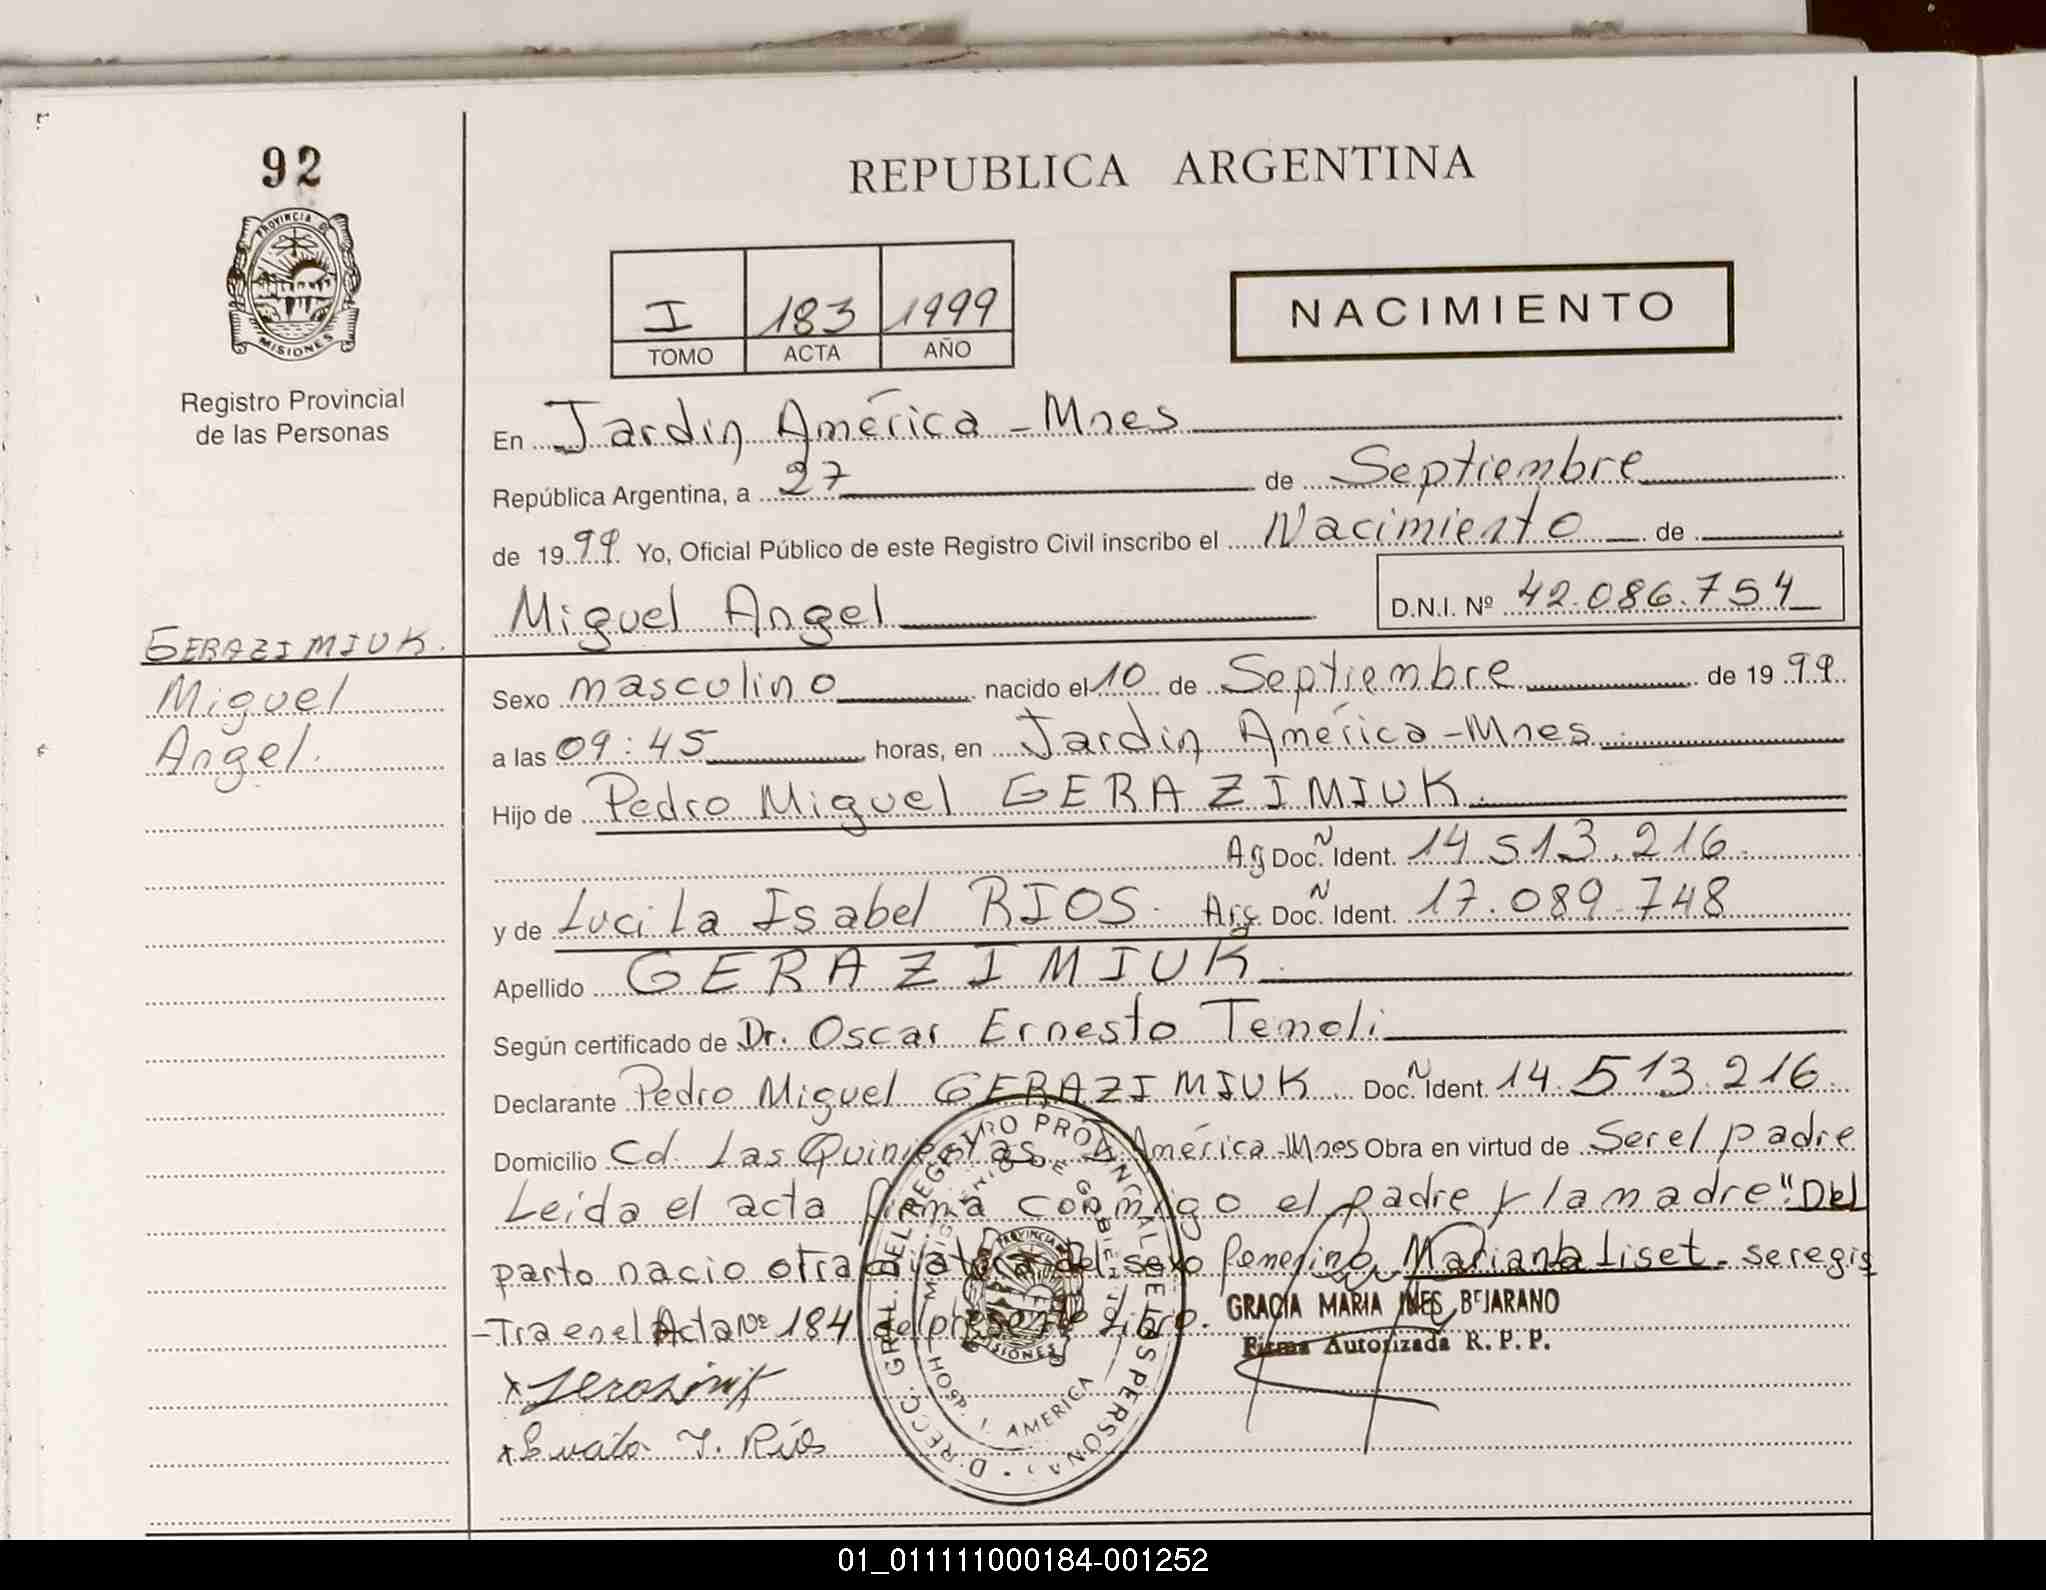 92
REPUBLICA ARGENTINA
PROVINCIA DE
MISIONES
Registro Provincial
de las Personas
I 183 1999
TOMO ACTA AÑO
NACIMIENTO
En Jardín América - Mnes
República Argentina, a 27 de Septiembre
de 1999 Yo, Oficial Público de este Registro Civil inscribo el Nacimiento de
Miguel Angel D.N.I. Nº 42.086.754
GERAZIMIUK.
Miguel
Angel.
Sexo masculino nacido el 10 de Septiembre de 1999
a las 09:45 horas, en Jardín América - Mnes
Hijo de Pedro Miguel GERAZIMIUK.
Ag Doc. Ident. 14.513.216
y de Lucila Isabel RIOS. Arg Doc. Ident. 17.089.748
Apellido GERAZIMIUK.
Según certificado de Dr. Oscar Ernesto Temoli
Declarante Pedro Miguel GERAZIMIUK Doc. Ident. 14.513.216
Domicilio Cd. Las Quinientas J. América - Mnes Obra en virtud de Ser el padre
Leída el acta firma conmigo el padre y la madre "Del
parto nacio otra del sexo femenino Mariana Liset. se regis
-Tra en el Acta Nº 184 del presente Libro.
GRACIA MARIA INES BEJARANO
Firma Autorizada R. P. P.
I. Ríos
DIRECC. GRAL. DEL REGISTRO PROVINCIAL DE LAS PERSONAS
MINISTERIO DE GOBIERNO
HOSP. J. AMERICA
PROVINCIA
MISIONES
01_011111000184-001252